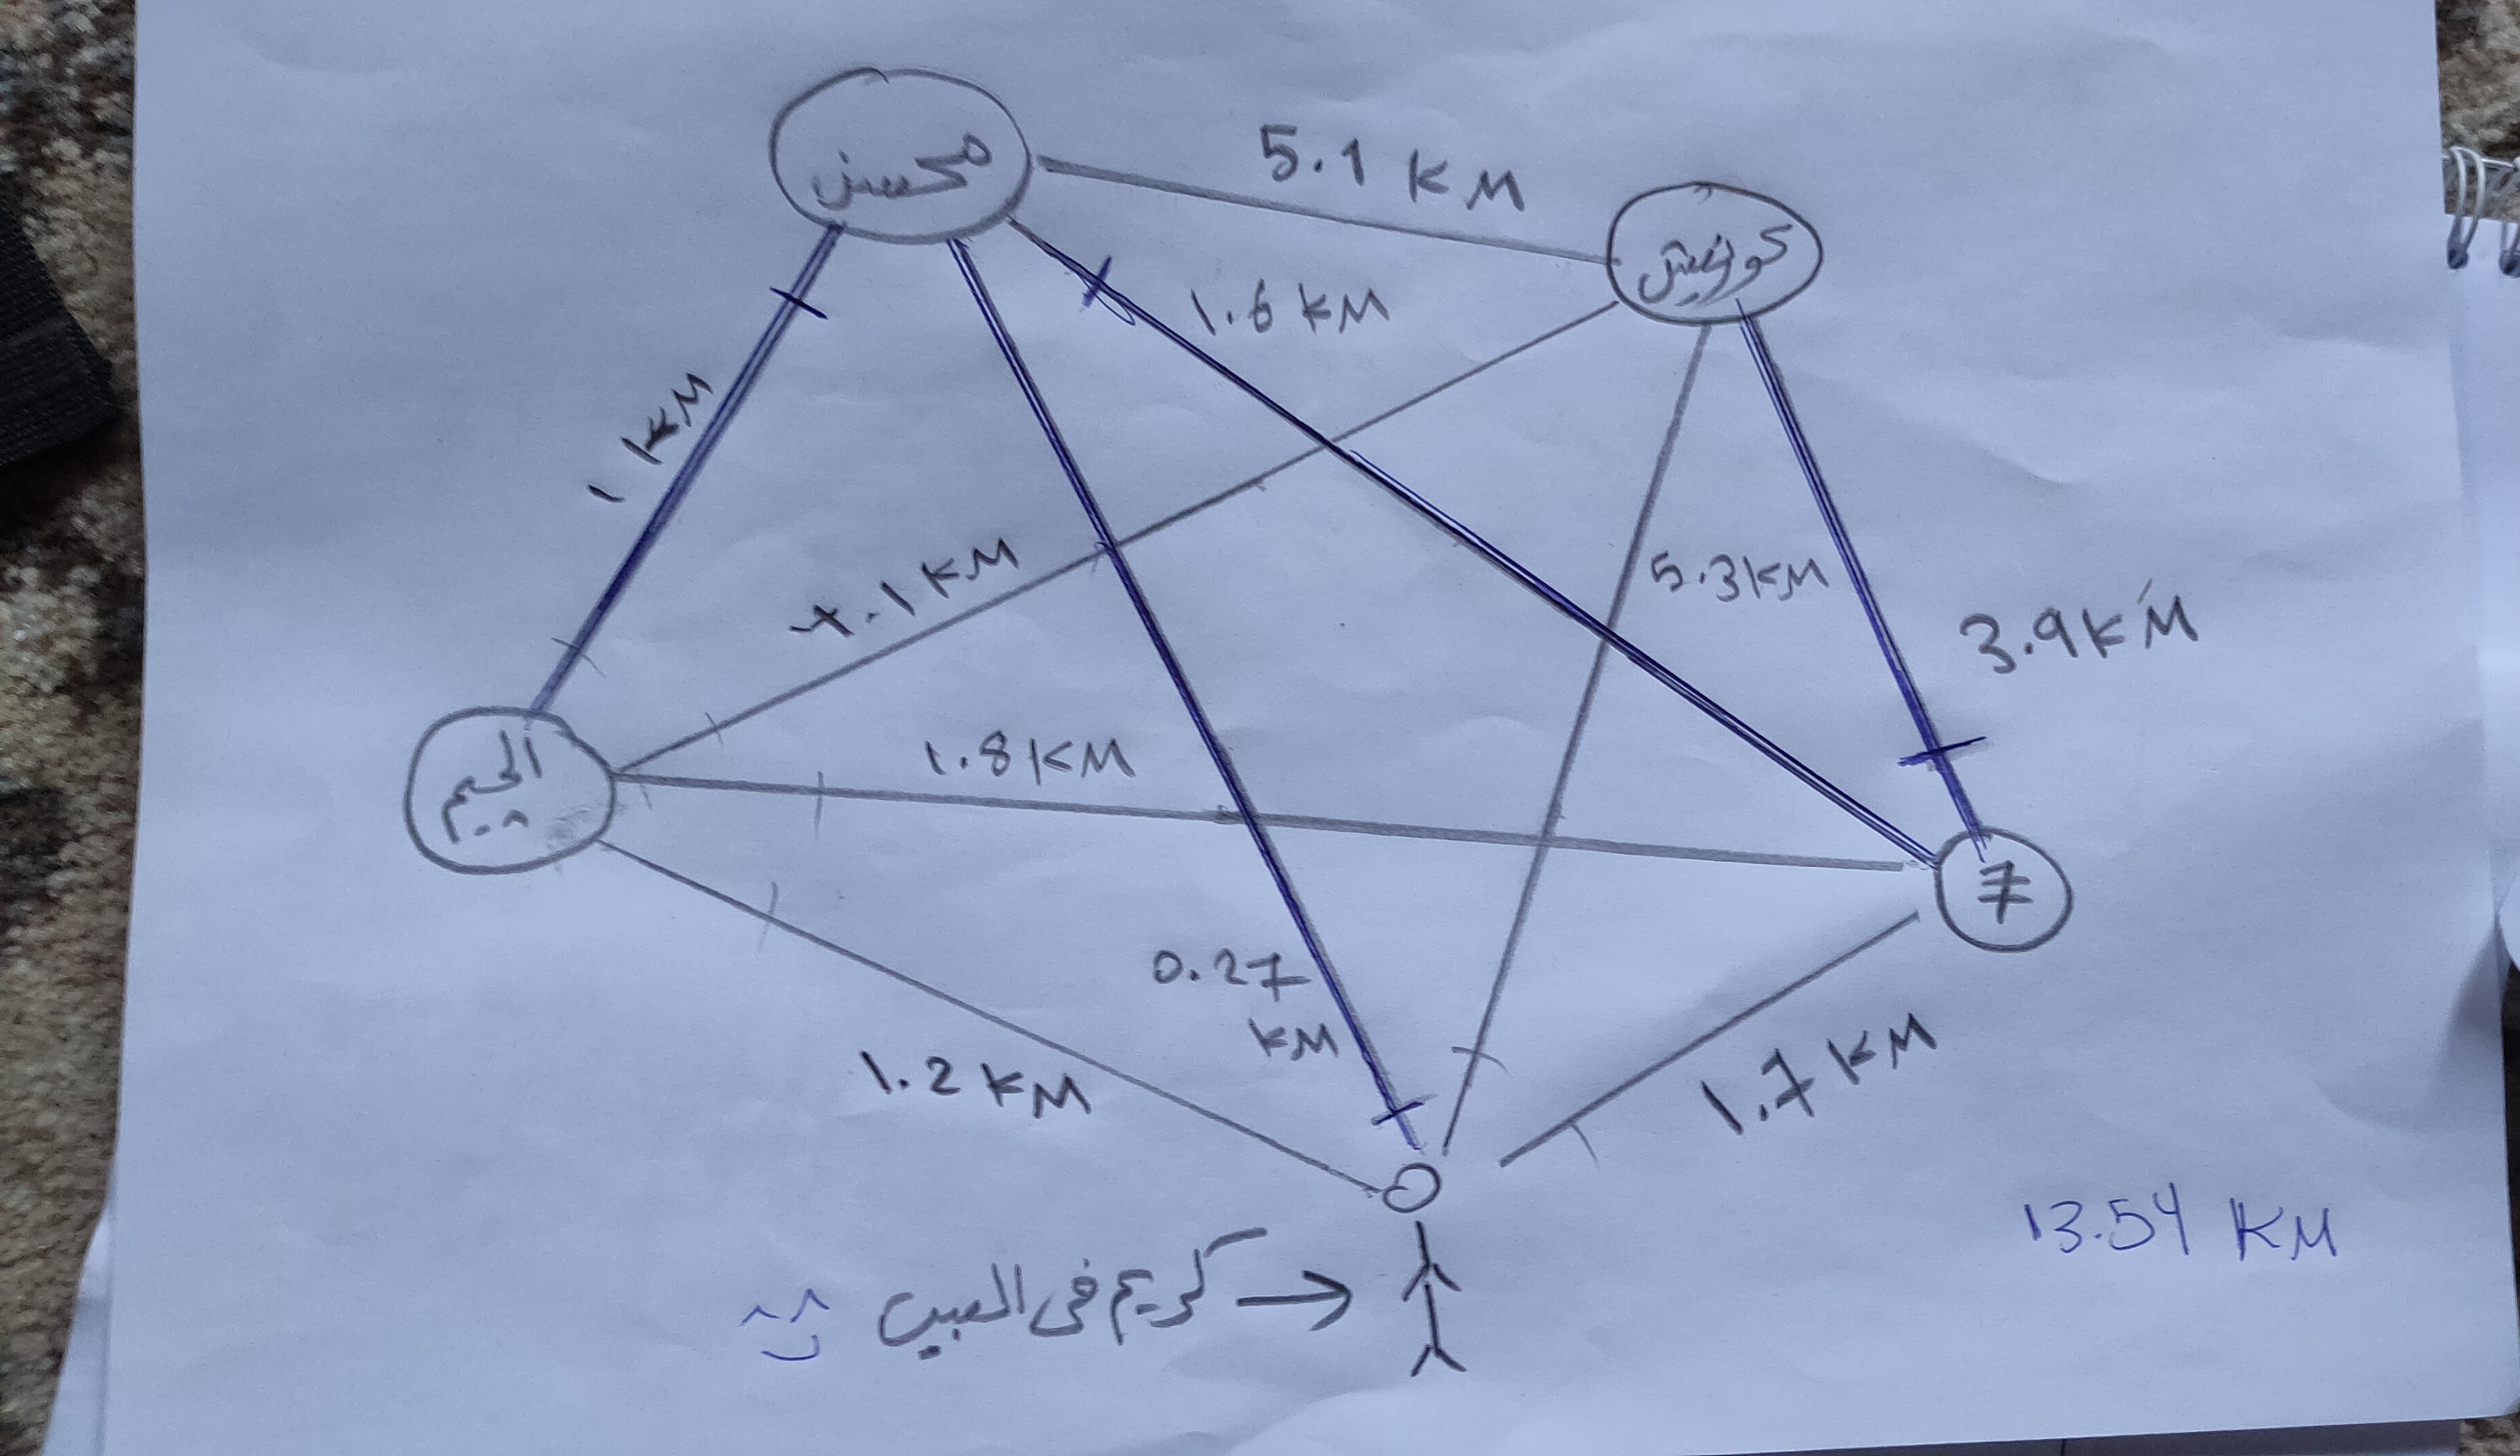 محسن
5.1 KM
كورنيش
1.6 KM
1 KM
4.1 KM
5.3 KM
3.9 KM
الجيم
1.8 KM
7
0.27
KM
1.2 KM
1.7 KM
13.54 KM
كريم فى البيت →